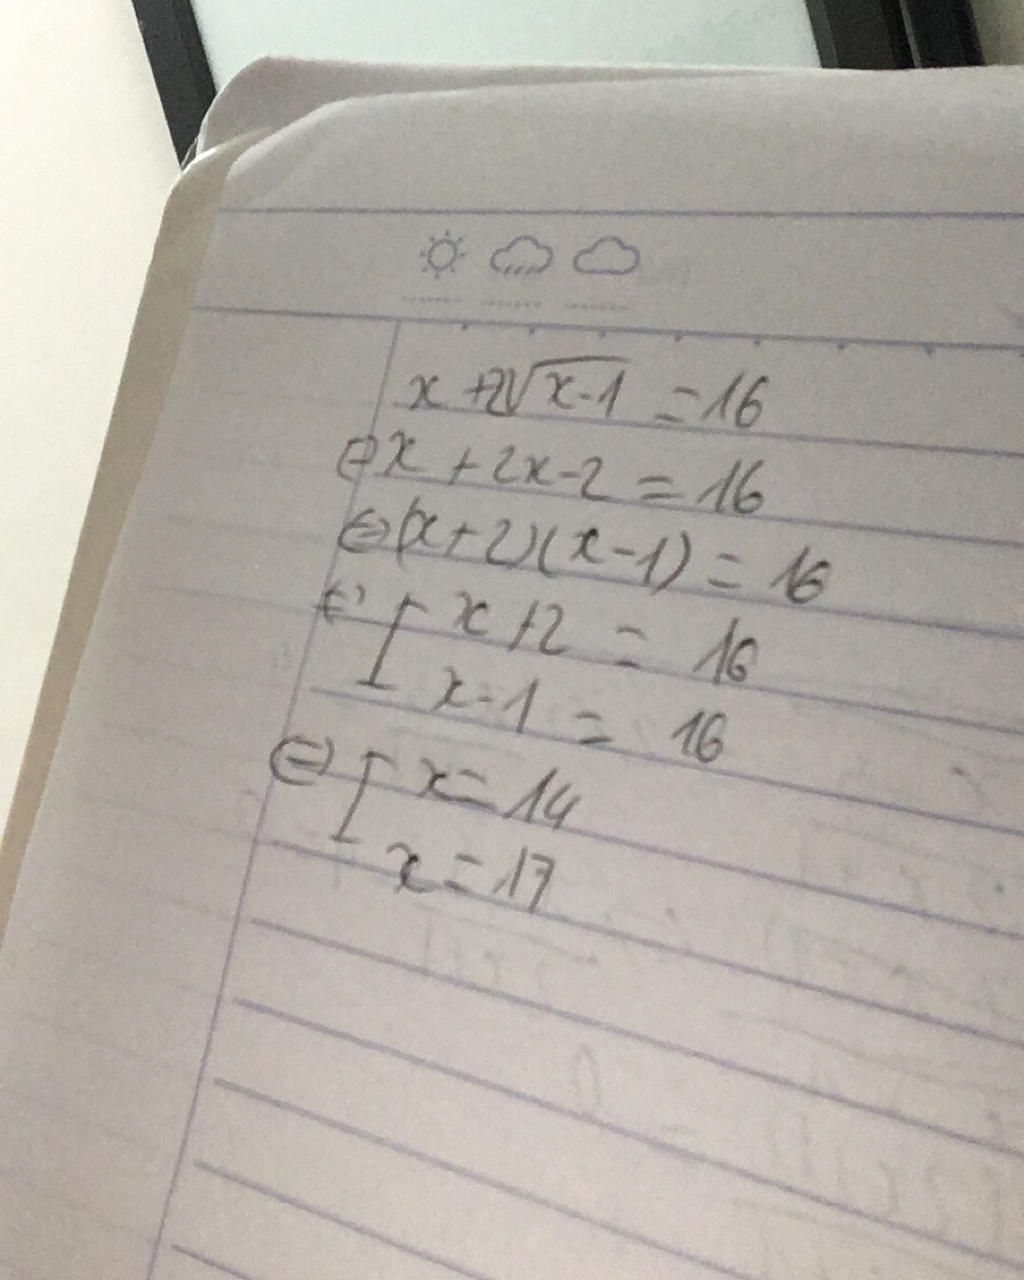 x + 2√(x-1) = 16
⇔ x + 2x - 2 = 16
⇔ (x+2)(x-1) = 16
⇔ [ x + 2 = 16
x - 1 = 16
⇔ [ x = 14
x = 17